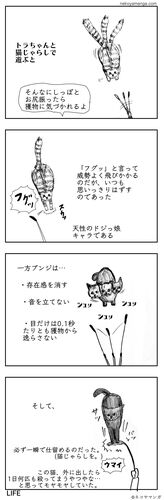 nekoyamanga.com
トラちゃんと
猫じゃらしで
遊ぶと
そんなにしっぽと
お尻振ったら
獲物に気づかれるよ
「フグッ」と言って
威勢よく飛びかかる
のだが、いつも
思いっきりはずす
のであった
フグッ!
スカッ
天性のドジッ娘
キャラである
一方ブンジは…
・存在感を消す
・音を立てない
・目だけは0.1秒
たりとも獲物から
逸らさない
シュッ
シュッ
シュッ
そして、
必ず一瞬で仕留めるのだった。
(猫じゃらしを。)
ウマイ
この猫、外に出したら
1日何匹も殺ってまうやつやな…
と思ってモヤモヤしている。
LIFE
©ネコヤマンガ